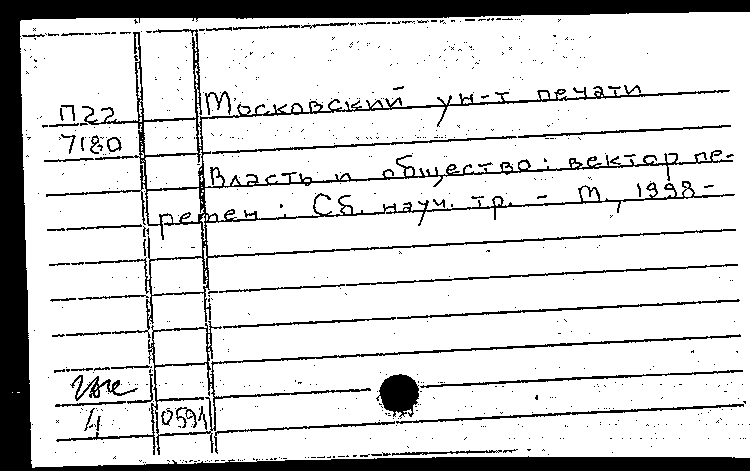 П22
7180
Московский ун-т печати
Власть и общество: вектор пе-
ремен: Сб. науч. тр. - М., 1998-
4
0591